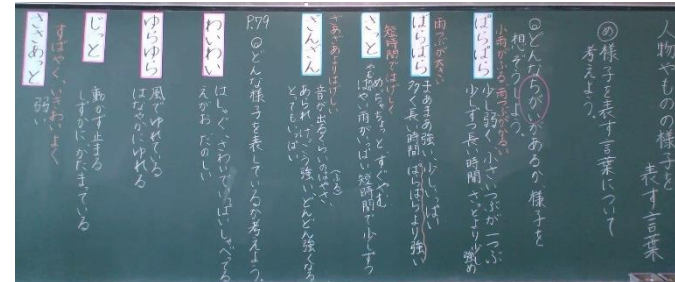 人物やものの様子を
表す言葉
め 様子を表す言葉について
考えよう。
どんなちがいがあるか、様子を
想ぞうしよう。
小雨がふる 雨つぶがかるい
ぱらぱら
少し弱く、小さいつぶが一つぶ
少しずつ長い時間 さっとより少し強め
雨つぶが大きい
ばらばら
まあまあ強い、少し、いっぱい
多く長い時間 ぱらぱらより強い
短時間ではげしく
さっと
めちゃちょっと すぐやむ
はやい雨がいっぱい 短時間で少しずつ
ざあざあよりはげしい
ざんざん
音が出るくらいのはやさ、
あられ、けっこう強い、どんどん強くなる
とてもいっぱい
P.79
どんな様子を表しているか考えよう。
わいわい
はしゃぐ、さわいでいる、いっぱいしゃべってる
えがお たのしい
ゆらゆら
風でゆれている
はなやかにゆれる
じっと
動かず止まる
しずかに かたまっている
すばやく、いきおいよく
ささあっと
弱い